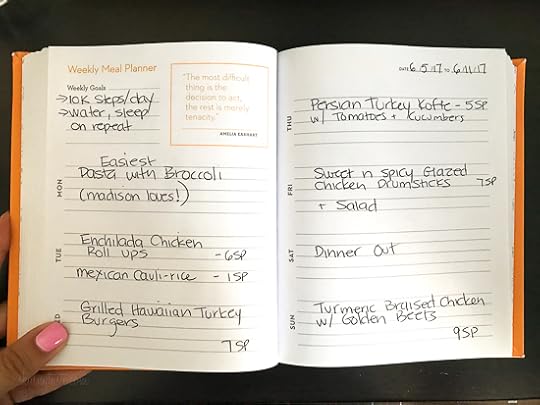 Weekly Meal Planner
Weekly Goals
→10K Steps/day
→water, sleep
on repeat
"The most difficult
thing is the
decision to act,
the rest is merely
tenacity."
AMELIA EARHART
MON
Easiest
Pasta with Broccoli
(madison loves!)
TUE
Enchilada Chicken
Roll ups -6SP
mexican cauli-rice -1SP
Grilled Hawaiian Turkey
Burgers
7SP
DATE 6/5/17 TO 6/11/17
THU
Persian Turkey Kofte - 5SP
w/ Tomatoes + Cucumbers
FRI
Sweet n Spicy Glazed
Chicken Drumsticks 7SP
+ Salad
SAT
Dinner Out
SUN
Turmeric Braised Chicken
w/ Golden Beets
9SP